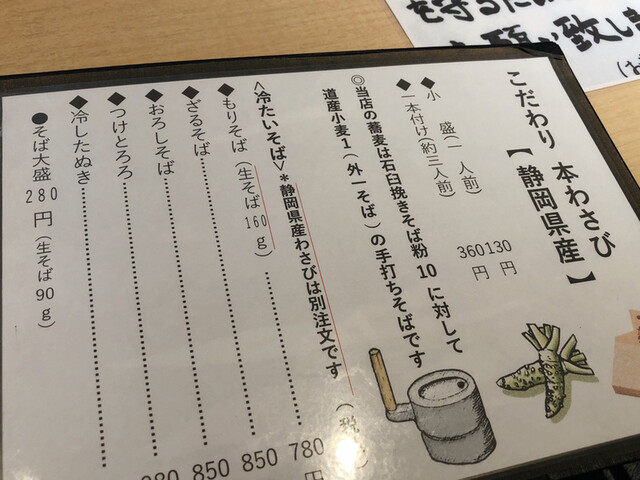 こだわり 本わさび
【静岡県産】
◆小 盛(一 人前) 130円
◆一本付け(約三人前) 360円
◎当店の蕎麦は石臼挽きそば粉10に対して
道産小麦1(外一そば)の手打ちそばです
<冷たいそば>*静岡県産わさびは別注文です
◆もりそば(生そば160g) 780円
◆ざるそば 850
◆おろしそば 850
◆つけとろろ
◆冷したぬき
●そば大盛 280円(生そば90g)
を守るため
致しま